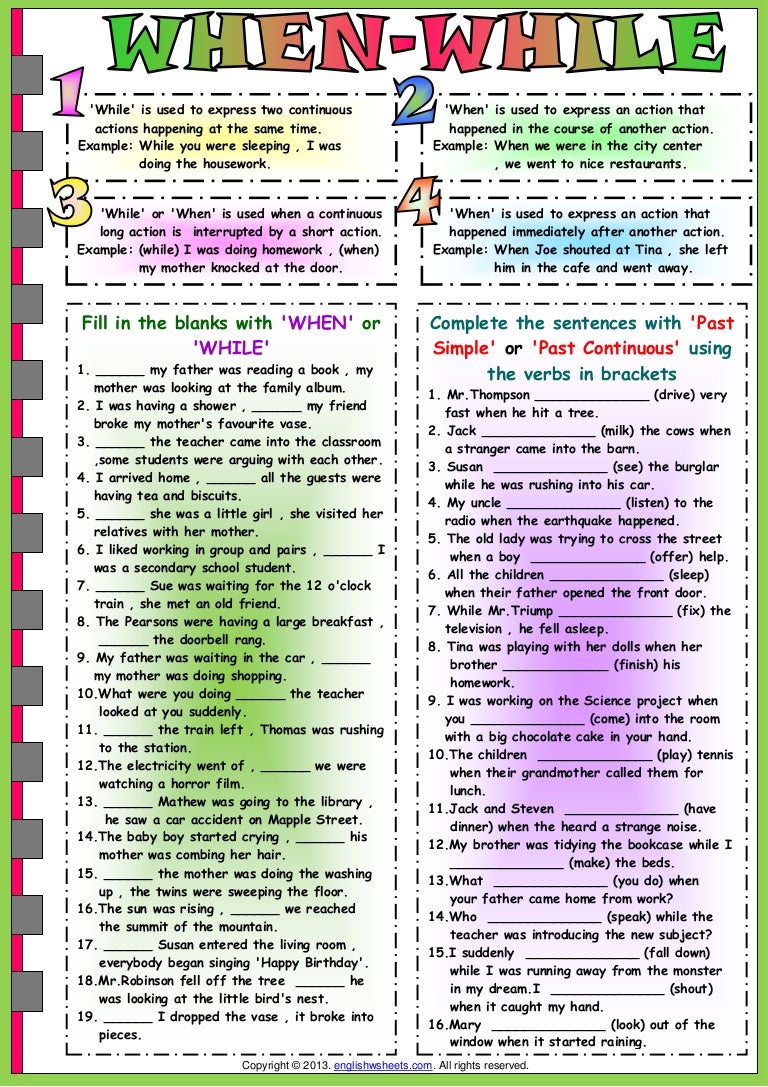 WHEN-WHILE
1
'While' is used to express two continuous
actions happening at the same time.
Example: While you were sleeping , I was
doing the housework.
2
'When' is used to express an action that
happened in the course of another action.
Example: When we were in the city center
, we went to nice restaurants.
3
'While' or 'When' is used when a continuous
long action is interrupted by a short action.
Example: (while) I was doing homework , (when)
my mother knocked at the door.
4
'When' is used to express an action that
happened immediately after another action.
Example: When Joe shouted at Tina , she left
him in the cafe and went away.
Fill in the blanks with 'WHEN' or
'WHILE'
1. ______ my father was reading a book , my
mother was looking at the family album.
2. I was having a shower , ______ my friend
broke my mother's favourite vase.
3. ______ the teacher came into the classroom
,some students were arguing with each other.
4. I arrived home , ______ all the guests were
having tea and biscuits.
5. ______ she was a little girl , she visited her
relatives with her mother.
6. I liked working in group and pairs , ______ I
was a secondary school student.
7. ______ Sue was waiting for the 12 o'clock
train , she met an old friend.
8. The Pearsons were having a large breakfast ,
______ the doorbell rang.
9. My father was waiting in the car , ______
my mother was doing shopping.
10.What were you doing ______ the teacher
looked at you suddenly.
11. ______ the train left , Thomas was rushing
to the station.
12.The electricity went of , ______ we were
watching a horror film.
13. ______ Mathew was going to the library ,
he saw a car accident on Mapple Street.
14.The baby boy started crying , ______ his
mother was combing her hair.
15. ______ the mother was doing the washing
up , the twins were sweeping the floor.
16.The sun was rising , ______ we reached
the summit of the mountain.
17. ______ Susan entered the living room ,
everybody began singing 'Happy Birthday'.
18.Mr.Robinson fell off the tree ______ he
was looking at the little bird's nest.
19. ______ I dropped the vase , it broke into
pieces.
Complete the sentences with 'Past
Simple' or 'Past Continuous' using
the verbs in brackets
1. Mr.Thompson ______________ (drive) very
fast when he hit a tree.
2. Jack ______________ (milk) the cows when
a stranger came into the barn.
3. Susan ______________ (see) the burglar
while he was rushing into his car.
4. My uncle ______________ (listen) to the
radio when the earthquake happened.
5. The old lady was trying to cross the street
when a boy ______________ (offer) help.
6. All the children ______________ (sleep)
when their father opened the front door.
7. While Mr.Triump ______________ (fix) the
television , he fell asleep.
8. Tina was playing with her dolls when her
brother _____________ (finish) his
homework.
9. I was working on the Science project when
you ______________ (come) into the room
with a big chocolate cake in your hand.
10.The children ______________ (play) tennis
when their grandmother called them for
lunch.
11.Jack and Steven ______________ (have
dinner) when the heard a strange noise.
12.My brother was tidying the bookcase while I
______________ (make) the beds.
13.What ______________ (you do) when
your father came home from work?
14.Who ______________ (speak) while the
teacher was introducing the new subject?
15.I suddenly ______________ (fall down)
while I was running away from the monster
in my dream.I ______________ (shout)
when it caught my hand.
16.Mary ______________ (look) out of the
window when it started raining.
Copyright © 2013. englishwsheets.com. All rights reserved.